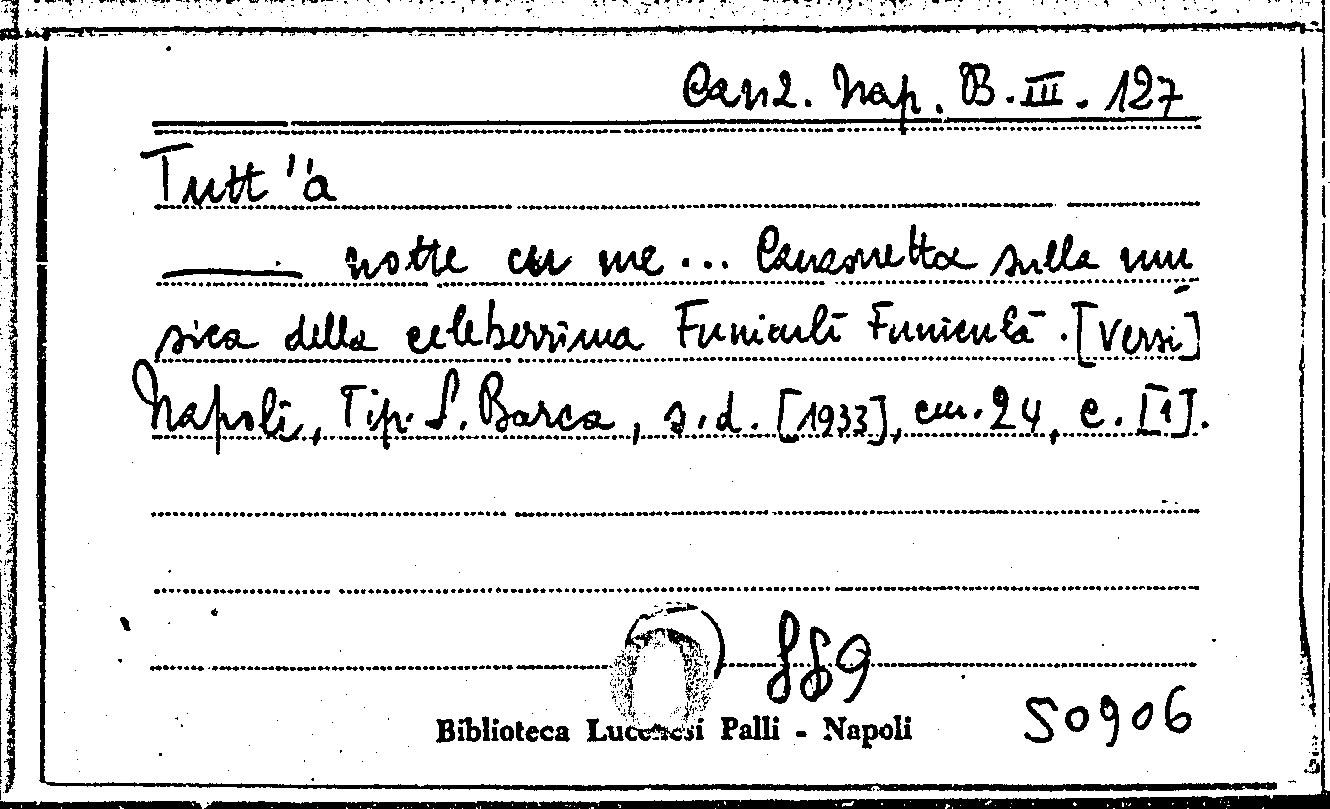 Canz. Nap. B.III.127
Tutt''a
notte cu me... Canzonetta sulla mu
sica della celeberrima Funiculì Funiculà. [Versi]
Napoli, Tip. S. Barca, s.d. [1933], cm. 24, c. [1].
889
Biblioteca Lucchesi Palli - Napoli
50906